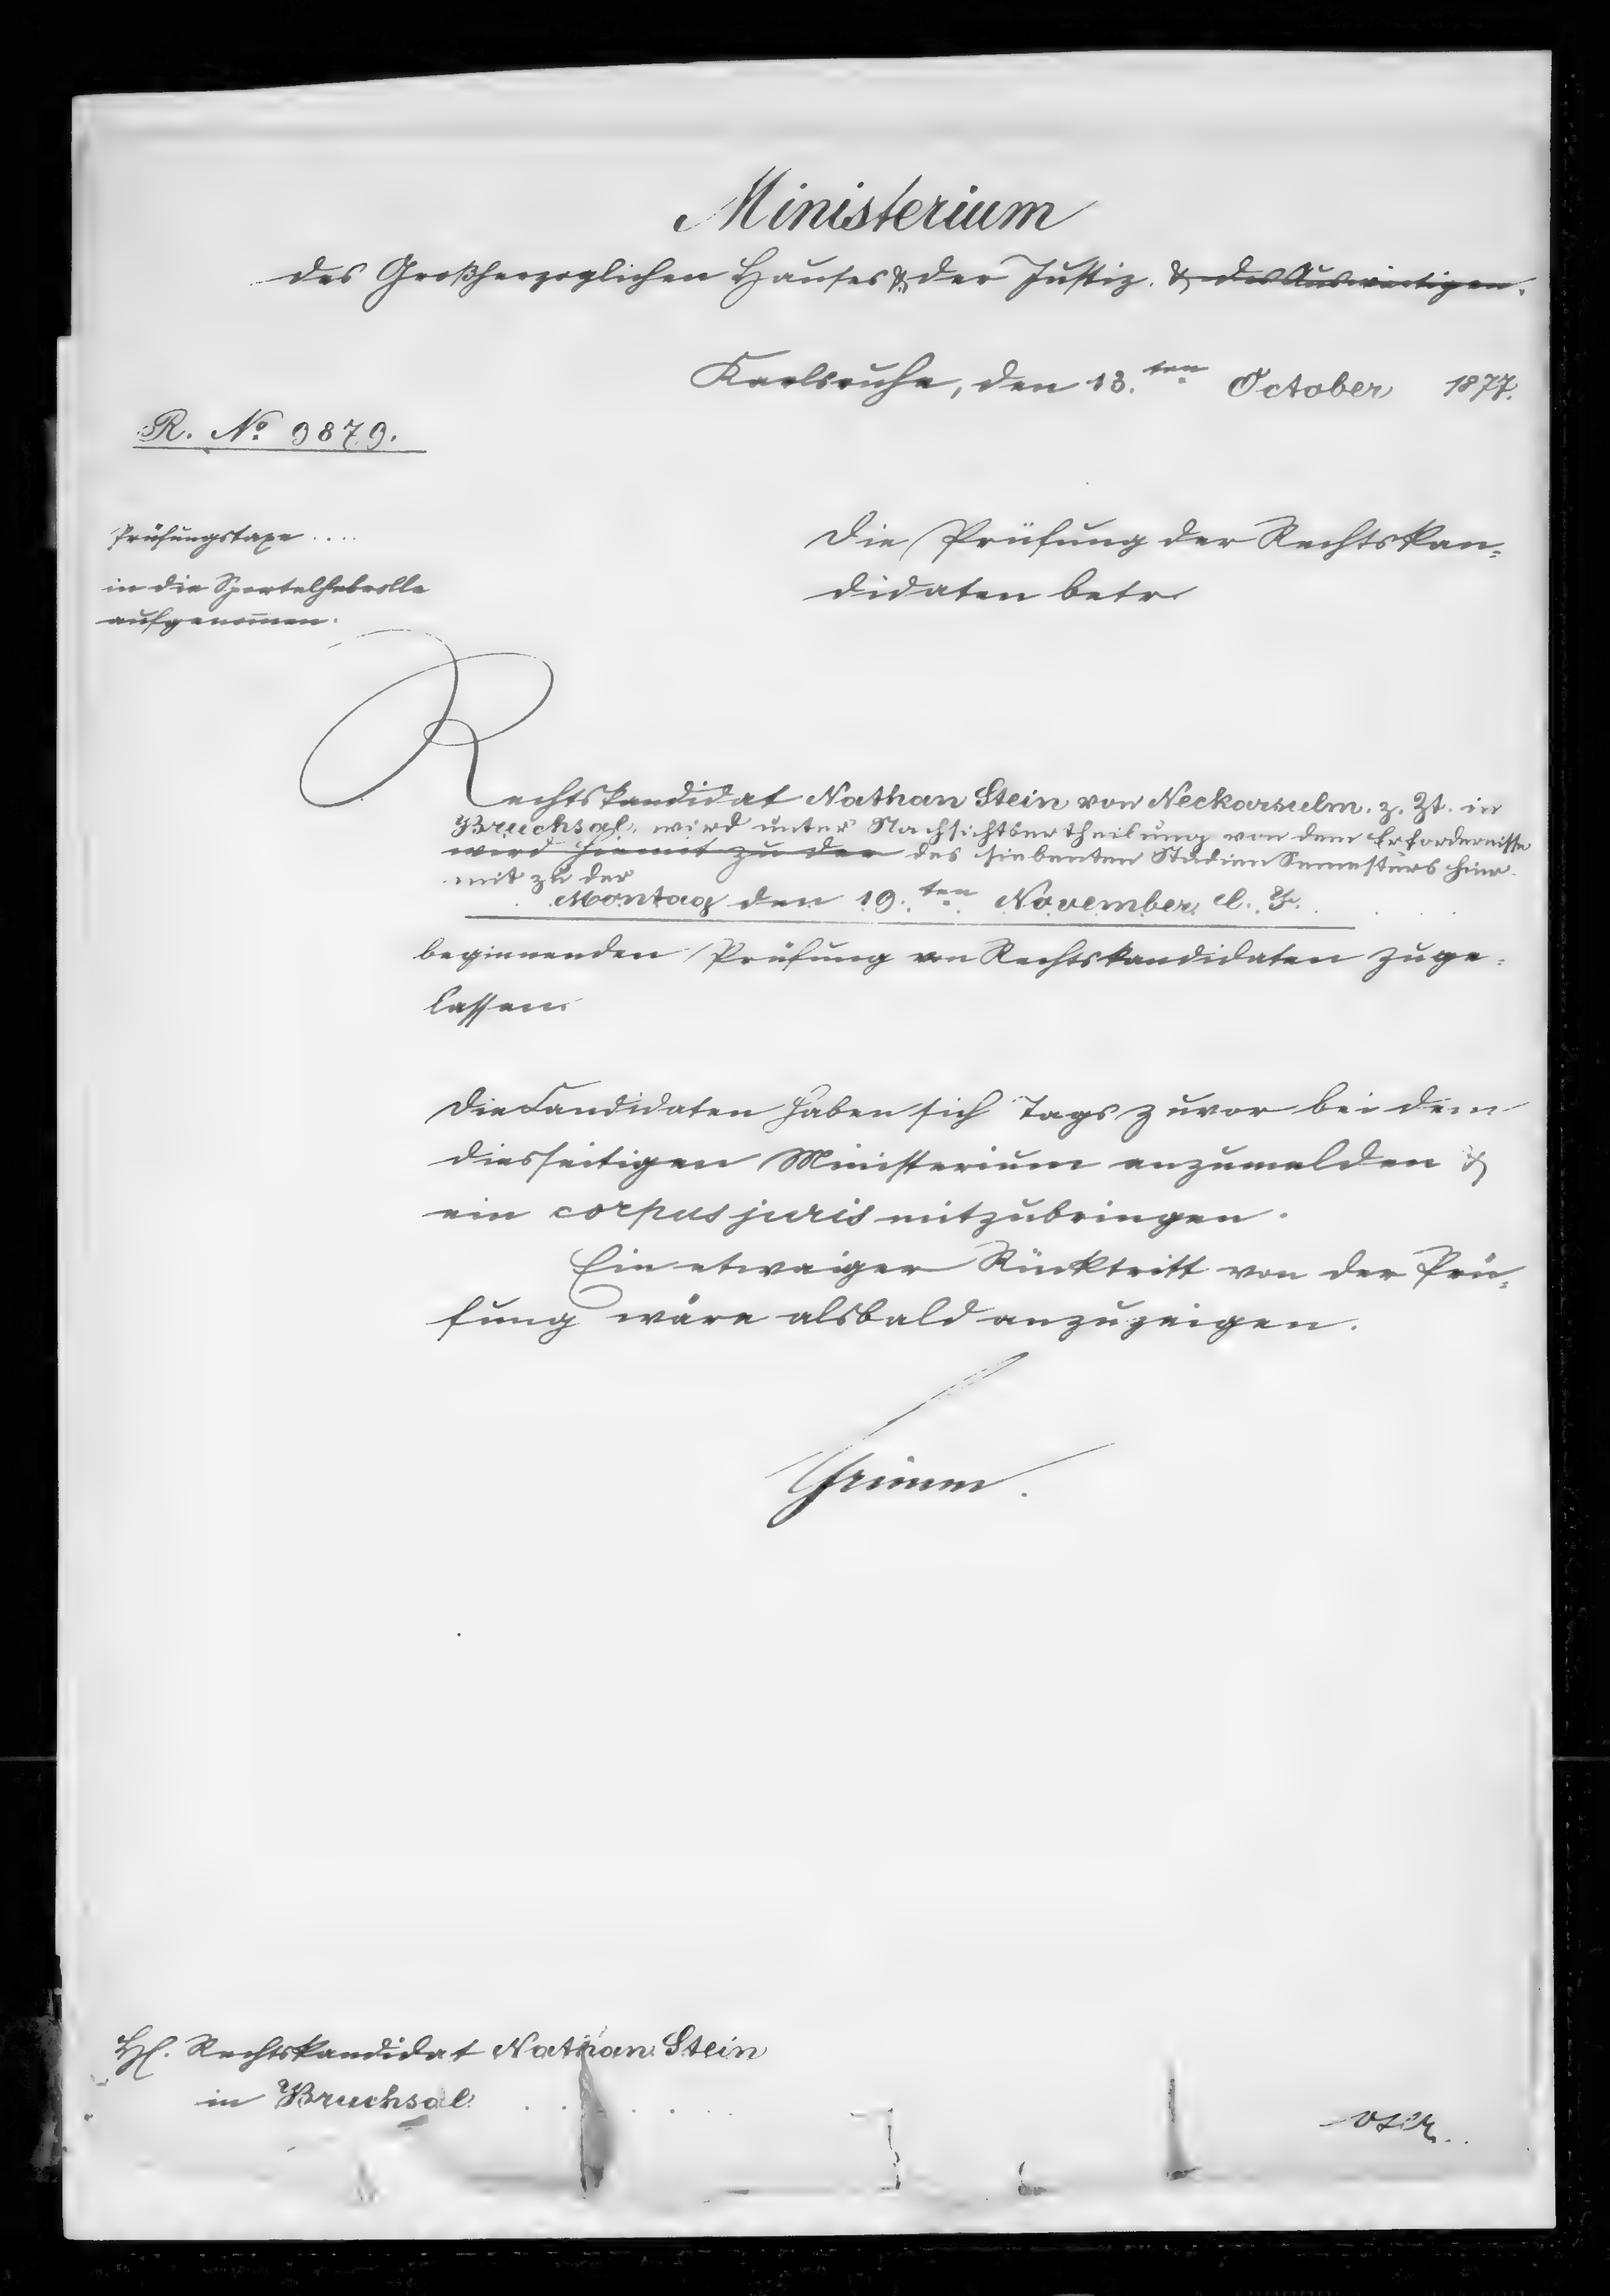 Ministerium
des Großherzoglichen Hauses & der Justiz. & des Auswärtigen.
Karlsruhe, den 13.ten October 1877.
R. No. 9879.
Prüfungstaxe ....
in die Sportelheberolle
aufgenommen.
Die Prüfung der Rechtskan-
didaten betr.
Rechtskandidat Nathan Stein von Neckarsulm. z. Zt. in
Bruchsal, wird unter Nachsichtsertheilung von dem Erfordernisse
wird hiemit zu der des siebenten Studien Semesters hier-
mit zu der
Montag den 19.ten November l. Js.
beginnenden Prüfung von Rechtskandidaten zuge-
lassen.
Die Candidaten haben sich Tags zuvor bei dem
diesseitigen Ministerium anzumelden &
ein corpus juris mitzubringen.
Ein etwaiger Rücktritt von der Prü-
fung wäre alsbald anzuzeigen.
Grimm.
H. Rechtskandidat Nathan Stein
in Bruchsal